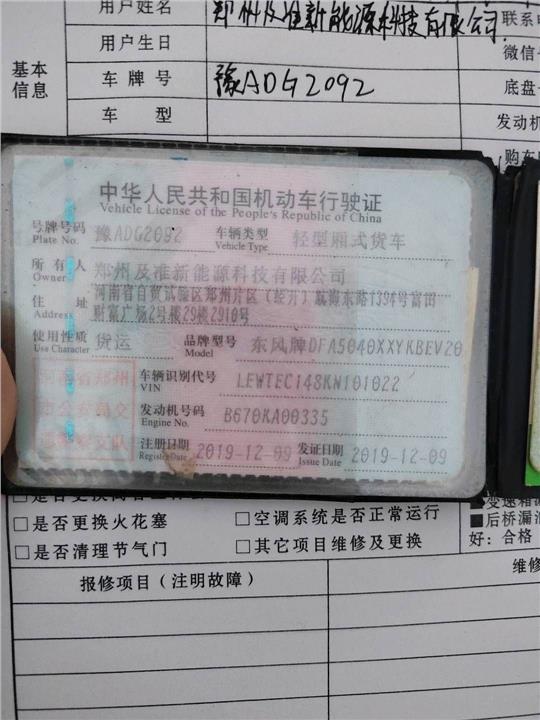 用户姓名 郑州及准新能源科技有限公司 联系电
用户生日 微信
基本信息
车牌号 豫ADG2092 底盘
车型 发动机
购车
中华人民共和国机动车行驶证
Vehicle License of the People's Republic of China
号牌号码 豫ADG2092 车辆类型 轻型厢式货车
Plate No. Vehicle Type
所有人 郑州及准新能源科技有限公司
Owner
住址 河南省自贸试验区郑州片区(经开)航海东路1394号富田
Address 财富广场2号楼29楼2910号
使用性质 货运 品牌型号 东风牌DFA5040XXYKBEV20
Use Character Model
河南省郑州 车辆识别代号 LEWTEC148KN101022
VIN
市公安局交 发动机号码 B670KA00335
Engine No.
通警察支队 注册日期 2019-12-09 发证日期 2019-12-09
Register Date Issue Date
□是否更换
□是否更换火花塞 □空调系统是否正常运行 ■变速箱漏
■后桥漏油
□是否清理节气门 □其它项目维修及更换 好:合格
报修项目(注明故障) 维修